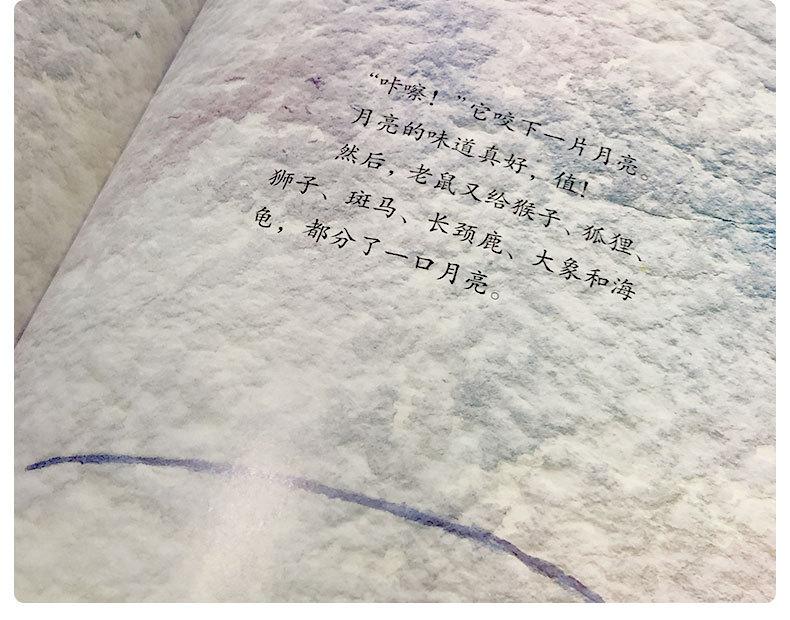 “咔嚓！”它咬下一片月亮。
月亮的味道真好，值！
然后，老鼠又给猴子、狐狸、
狮子、斑马、长颈鹿、大象和海
龟，都分了一口月亮。